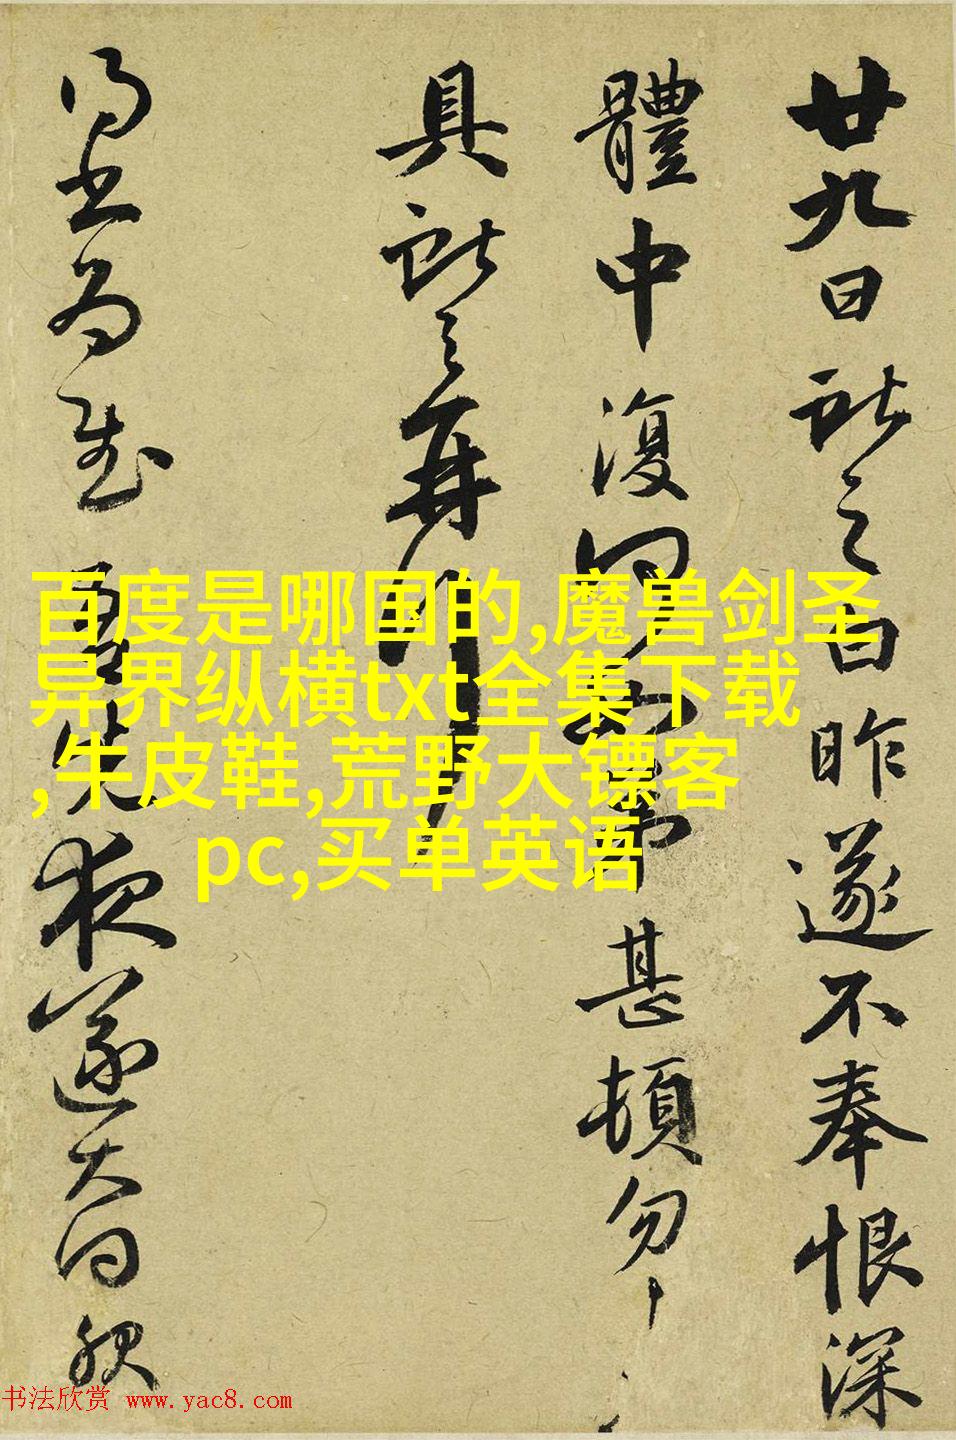 廿九日獻之白昨遂不奉恨深
體中復何如常甚頓勿
具獻之再拜
得書為慰
夜遂大
百度是哪国的,魔兽剑圣
异界纵横txt全集下载
,牛皮鞋,荒野大镖客
pc,买单英语
书法欣赏 www.yac8.com